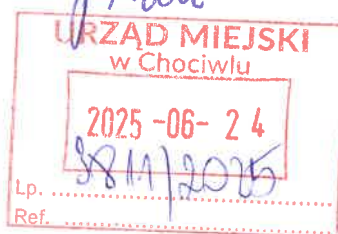 URZĄD MIEJSKI
w Chociwlu
2025 -06- 2 4
3811/2025
Lp. ....................
Ref. ....................